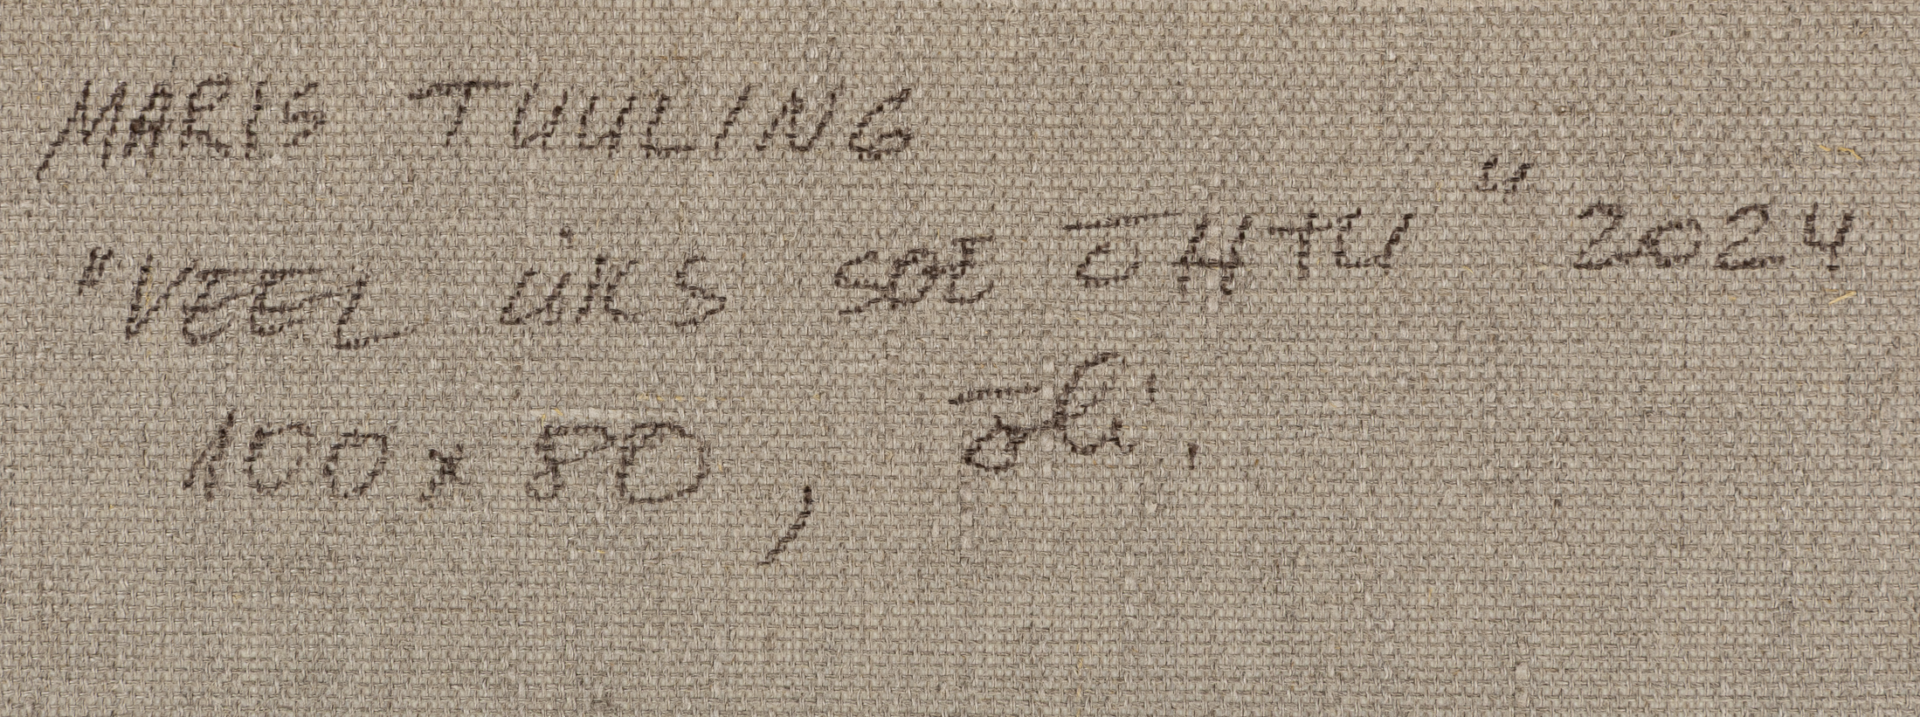 MARIS TUULING
"VEEL ÜKS SOE ÕHTU" 2024
100 x 80, õli.